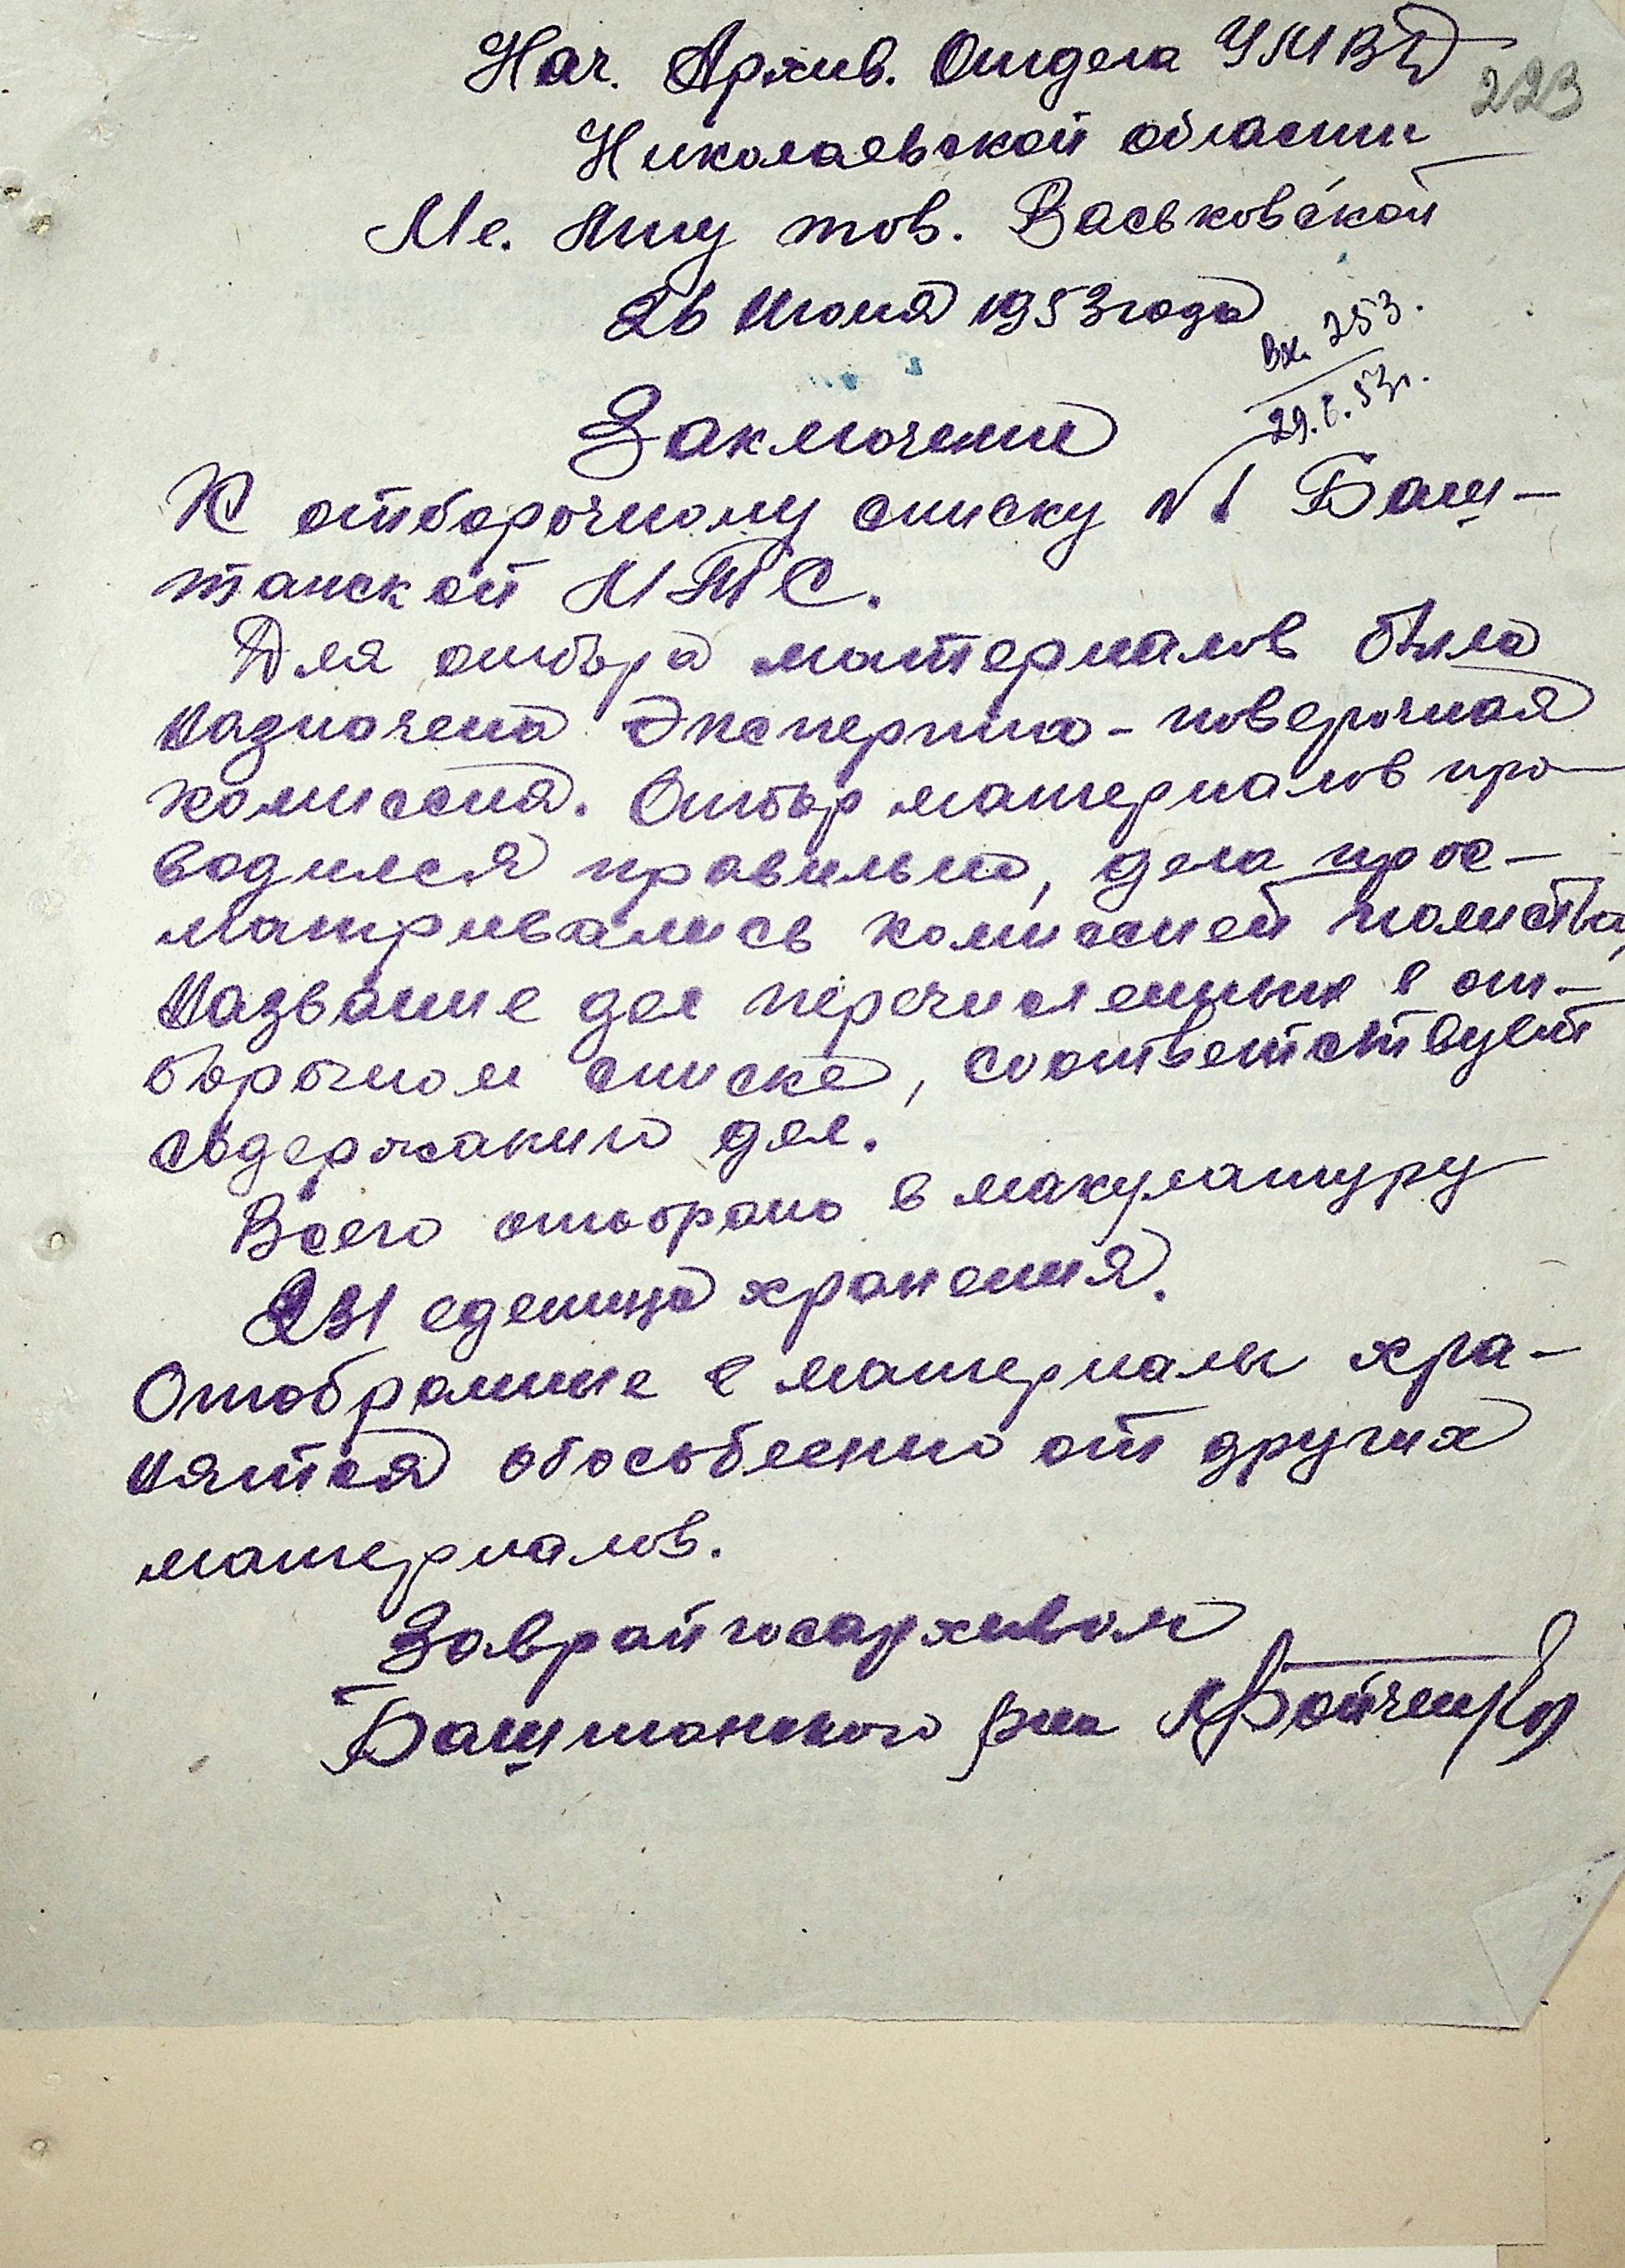 Нач. Архив. Отдела УМВД
223
Николаевской области
Мл. Л-ту тов. Васьковской
26 Июня 1953 года
Вх. 253.
29.6.53 г.
Заключение
К отборочному списку № 1 Баш-
танской МТС.
Для отбора материалов была
назначена Экспертно-поверочная
комиссия. Отбор материалов про-
водился правильно, дела прос-
матривались комиссией полистно,
Название дел перечисленных в от-
борочном списке, соответствует
содержанию дел.
Всего отобрано в макулатуру
231 еденица хранения.
Отобранные в материалы хра-
нятся обособленно от других
материалов.
Заврайгосархивом
Баштанского р-на Бойченко